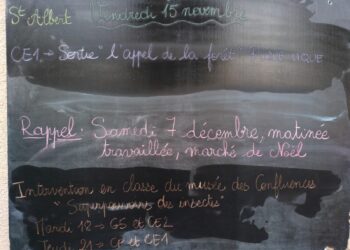 St Albert
Vendredi 15 novembre
CE1 → Sortie "l'appel de la forêt"
Rappel : Samedi 7 décembre, matinée
travaillée, marché de Noël
Intervention en classe du musée des Confluences
des insectes"
Mardi 12 → GS et CE2
Jeudi 21 → CP et CE1